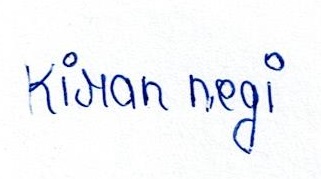 Kiran negi